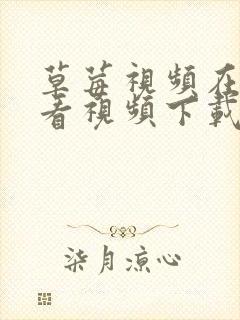 草莓視頻在
看視頻下載
柒月涼心